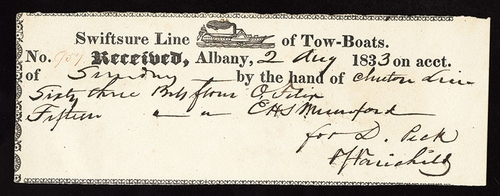 Swiftsure Line of Tow-Boats.
No. 907 Received, Albany, 2 Aug 1833 on acct.
of Sundry by the hand of Clinton Line
Sixty three Bbls flour O.
Fifteen " " E H S Mumford
for D. Peck
Fairchild